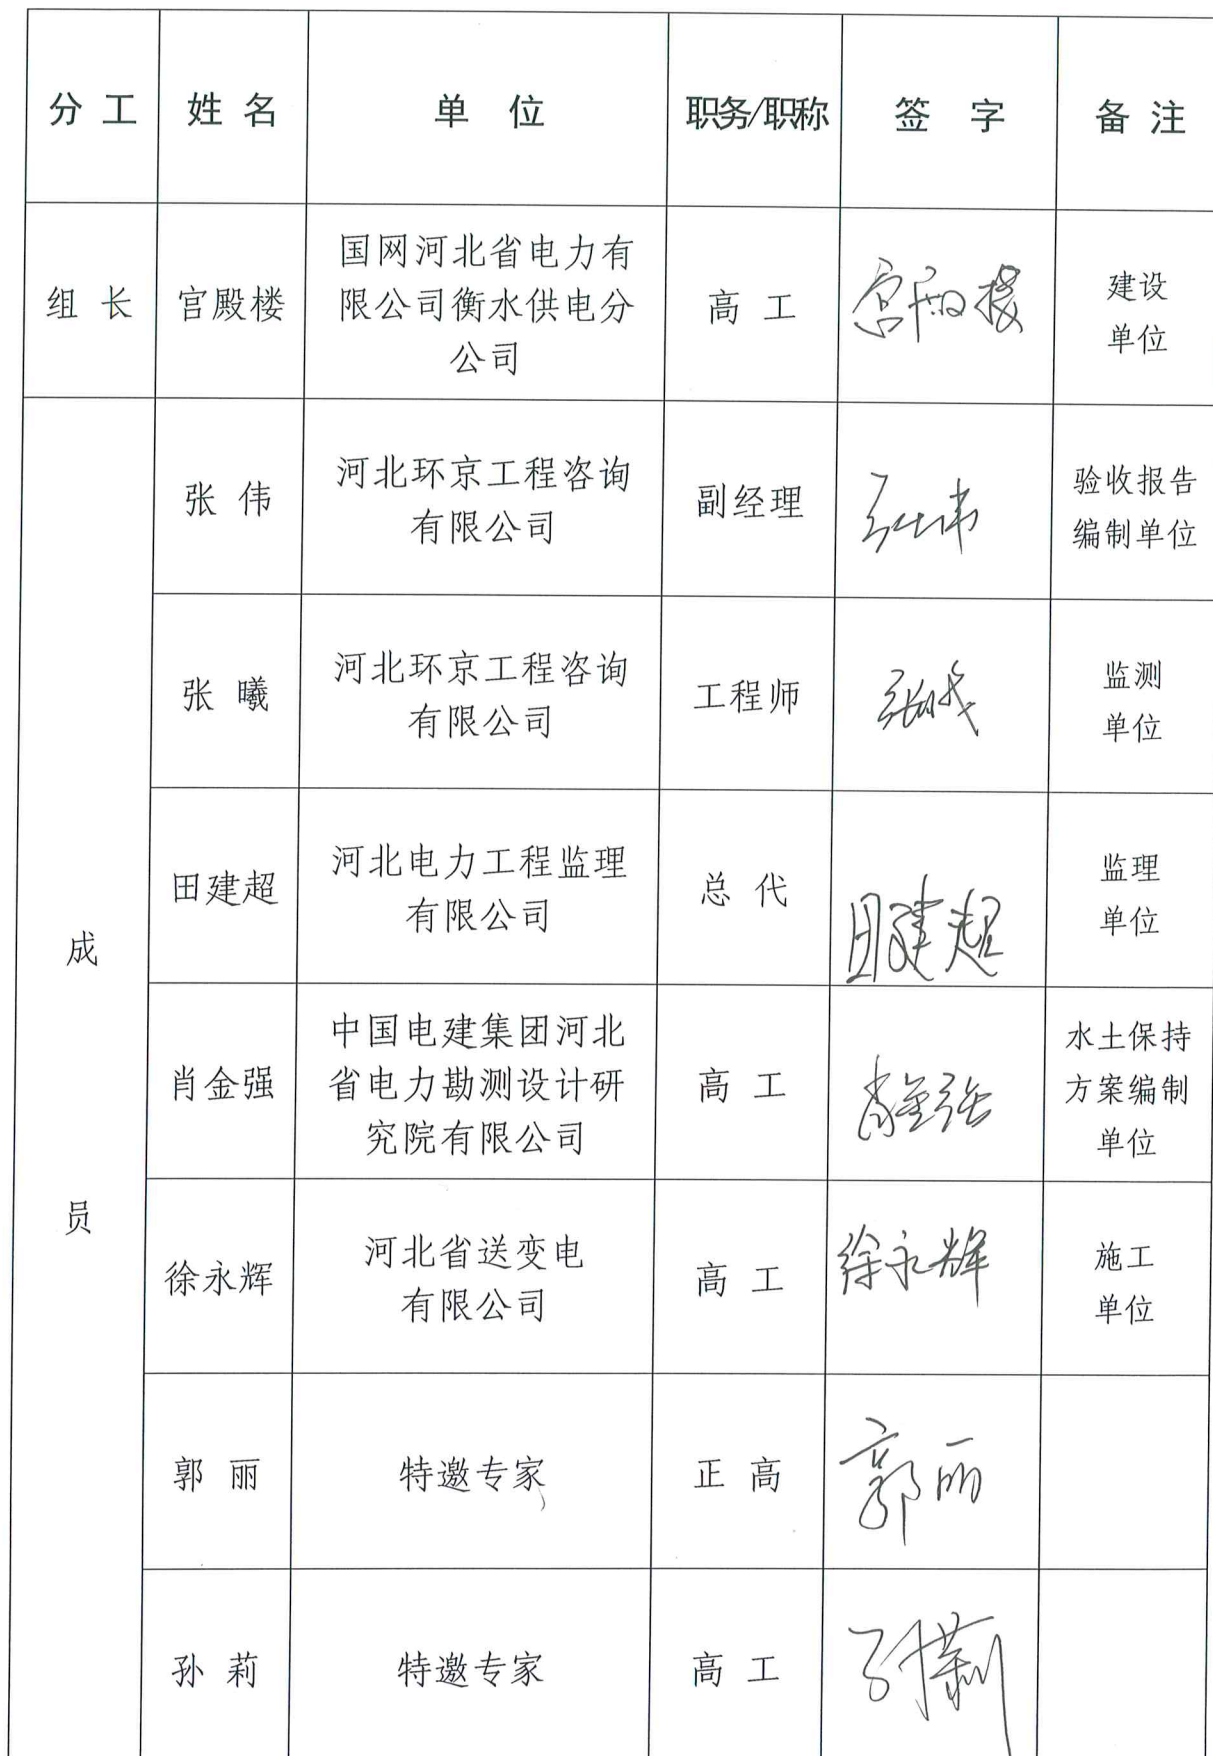 分工 姓名 单位 职务/职称 签字 备注
组长 官殿楼 国网河北省电力有
限公司衡水供电分
公司 高工 宫殿楼 建设
单位
成员
张伟 河北环京工程咨询
有限公司 副经理 张伟 验收报告
编制单位
张曦 河北环京工程咨询
有限公司 工程师 监测
单位
田建超 河北电力工程监理
有限公司 总代 田建超 监理
单位
肖金强 中国电建集团河北
省电力勘测设计研
究院有限公司 高工 肖金强 水土保持
方案编制
单位
徐永辉 河北省送变电
有限公司 高工 徐永辉 施工
单位
郭丽 特邀专家 正高 郭丽
孙莉 特邀专家 高工 孙莉